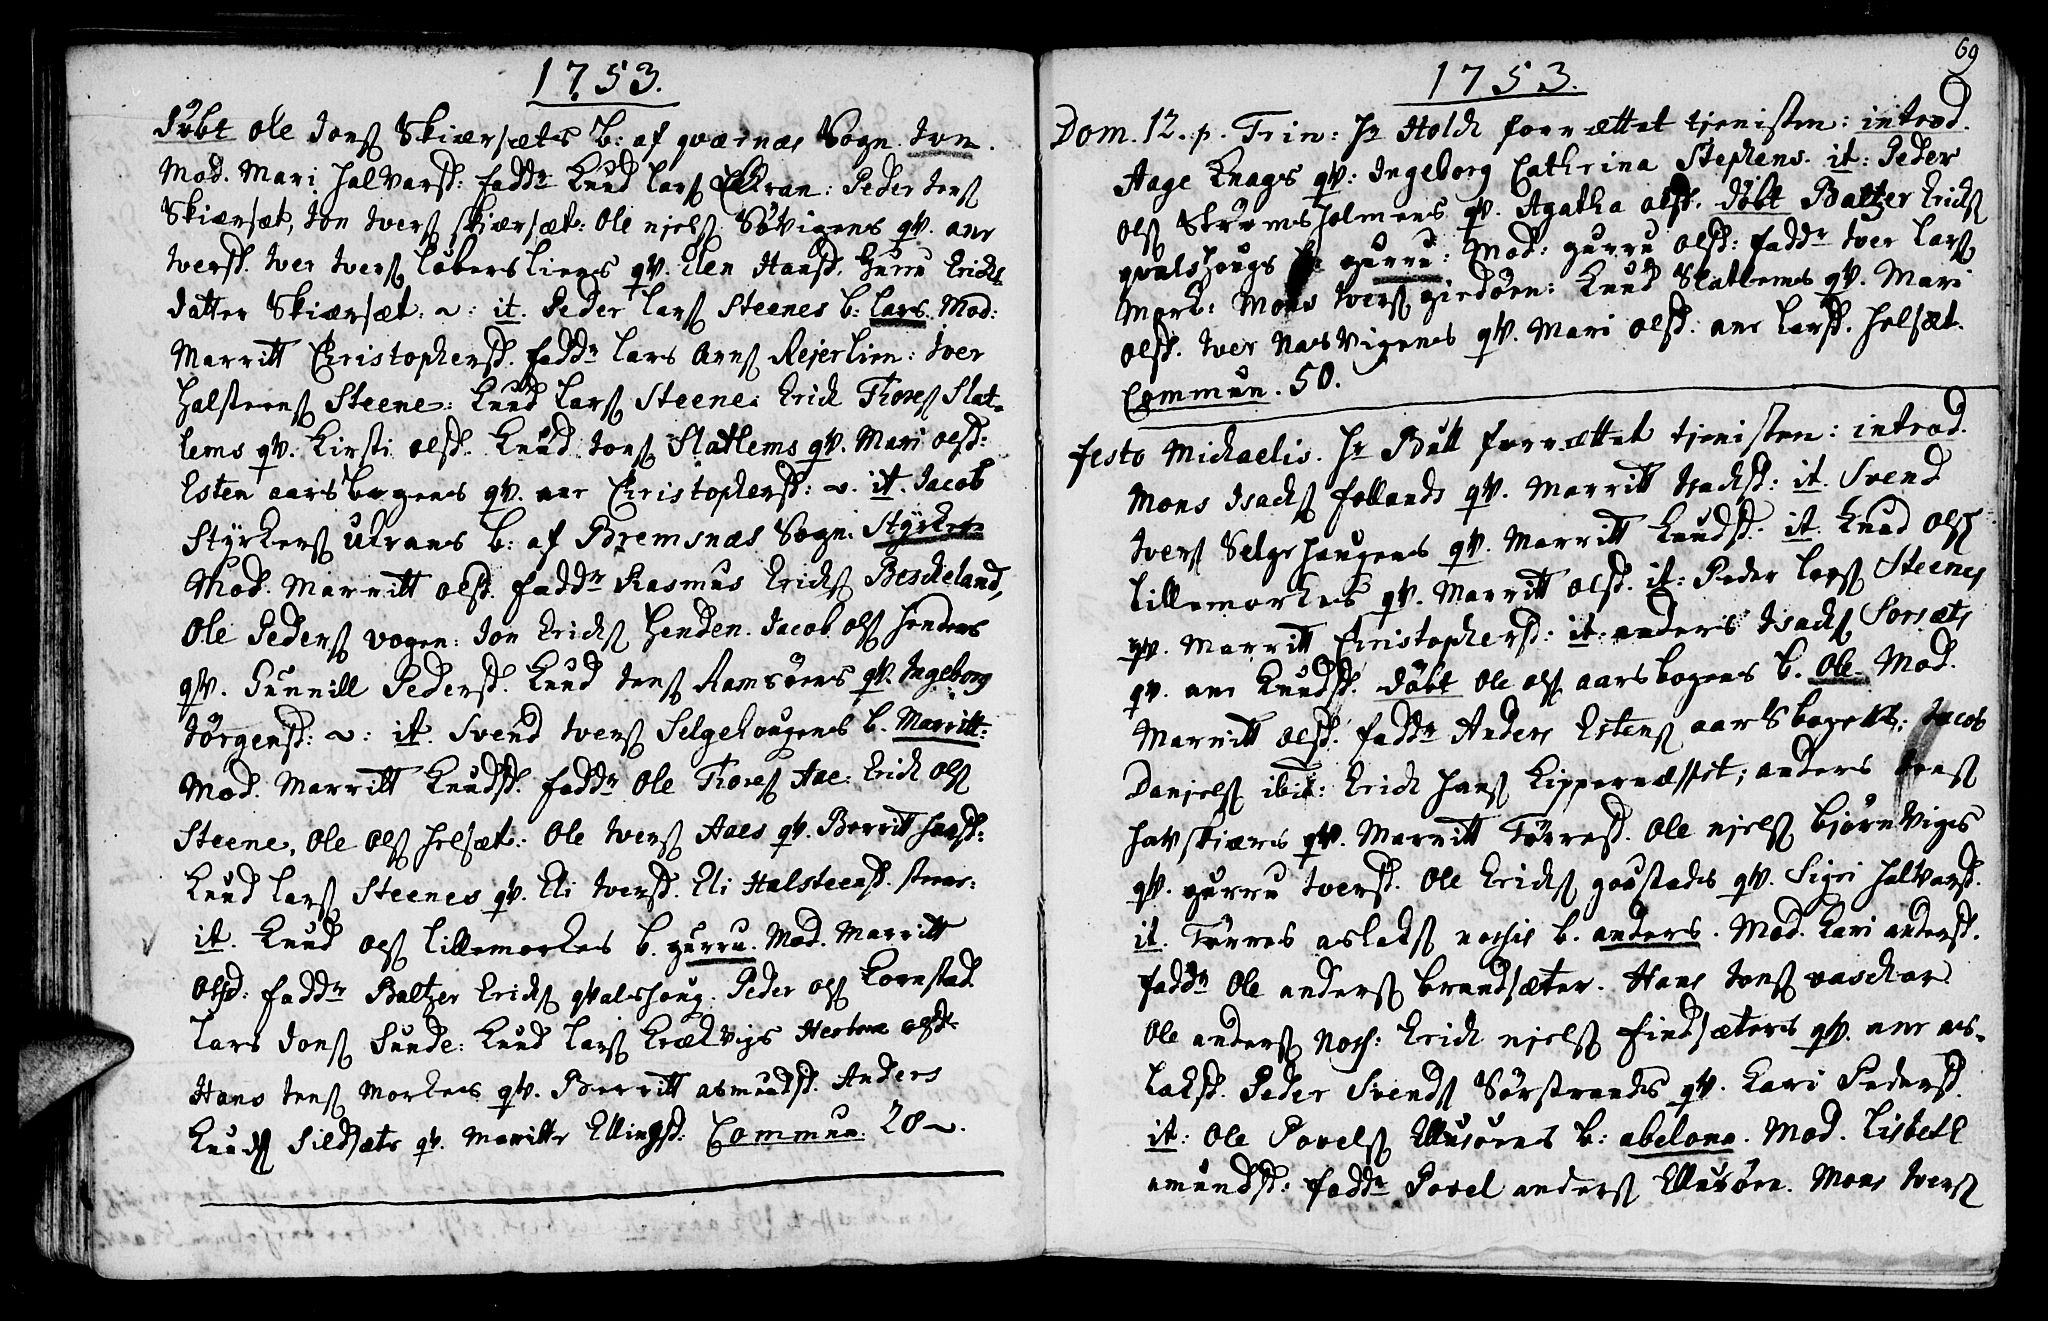 1753.
døbt Ole Jonß Skiærsæts b: af qværnæs Sogn. Jon.
Mod. Mari Halvarsd: fadd.r Knud Larß Ekran: Peder Jenß
Skiærsæt, Jon Iverß skiærsæt: Ole njelß Søvigens qv. ane
Iversd. Iver Iverß Løbersliens qv. Elen Hansd. Gurru Erichs
datter Skiærsæt: ~: it. Peder Larß Steenes b: Lars. Mod:
Marritt Christophersd. fadd.r Lars Arnß Rejerlien: Iver
Halsteenß Steene: Knud Larß Steene: Erich Thoreß Slat-
lems qv. Kirsti olsd. Knud Jonß Slatlems qv. Mari olsd:
Esten aarsbogens qv. ane Christophersd: ~. it. Jacob
Styrkerß Ukrans b: af Bremsnæs Sogn. Styrker
Mod. Marritt olsd. fadd.r Rasmus Erichß Bescheland,
Ole Pederß vogen: Jon Erichß Henden. Jacob olß Hendens
qv. Gunnill Pedersd. Knud Jenß Ramsøens qv. Ingeborg
Jørgensd: ~: it. Svend Iverß Selgehougens b. Marritt:
Mod. Marritt Knudsd. fadd.r Ole Thoreß Aae: Erich olß
Steene, Ole Olß Helsæt: Ole Iverß Aaes qv. Berritt Hansd:
Knud Larß Steenes qv. Eli Iversd. Eli Halsteensd. steene:
it. Knud olß Lillemorkes b. gurru. Mod. Marritt
Olsd: fadd.r Baltzer Erichß qvalshoug. Peder olß Kornstad
Lars Jonß Sunde: Knud Larß Krækvigs Hestnæ olsd.
Hans Jenß Morkens qv. Berritt asmudsd. Anders
Knudß Sildsæts qv. Marritte Ellingsd: Commun. 28 ~.
69
1753.
Dom. 12. p. Trin: Hr Holck forrættet tjenisten: introd.
Aage Knags qv: Ingeborg Cathrina Stephens. it: Peder
olß Strømsholmens qv. Agatha olsd. døbt Baltzer Erichß
qvalshougs gurru: Mod: gurru olsd: fadd.r Iver Larß
Mork: Mons Iverß giedøen: Knud Slatlems qv. Mari
olsd. Iver Nasvigens qv. Mari olsd: ane Larsd. Helsæt.
Commun. 50.
festo Michaelis. Hr Bull forrættet tjenisten: introd.
Mons Isachß follands qv. Marritt Isachsd: it. Svend
Iverß Selgehaugens qv. Marritt Knudsd. it. Knud Olß
Lillemorkes qv. Marritt olsd. it: Peder Larß Steenes
qv. Marritt Christophersd: it: anders Isachß Sorsæts
qv. ane Knudsd. døbt Ole olß aarsbogens b. Ole. Mod.
Marritt olsd. fadd.r Anders Estenß aarsbogen: Jacob
Danjelß ibid: Erich Hanß Kippernæsset; anders Jenß
Havskiærs qv. Marritt Tørresd. Ole njelß bjørnviges
qv. gurru Iversd. Ole Erichß goustads qv. Sigri Halvarsd.
it. Tørres aslakß nochis b. anders. Mod. Kari andersd.
fadd.r Ole anderß brandsæter. Hans Jonß vaschar
Ole anderß Noch: Erich njelß findsæters qv. ane as-
laksd. Peder Svendß Sørstrands qv. Kari Pedersd.
it: Ole Povelß Ellusøens b: abelona. Mod. Lisbeth
amundsd: fadd.r Povel anderß Ellusøen. Mons Iverß